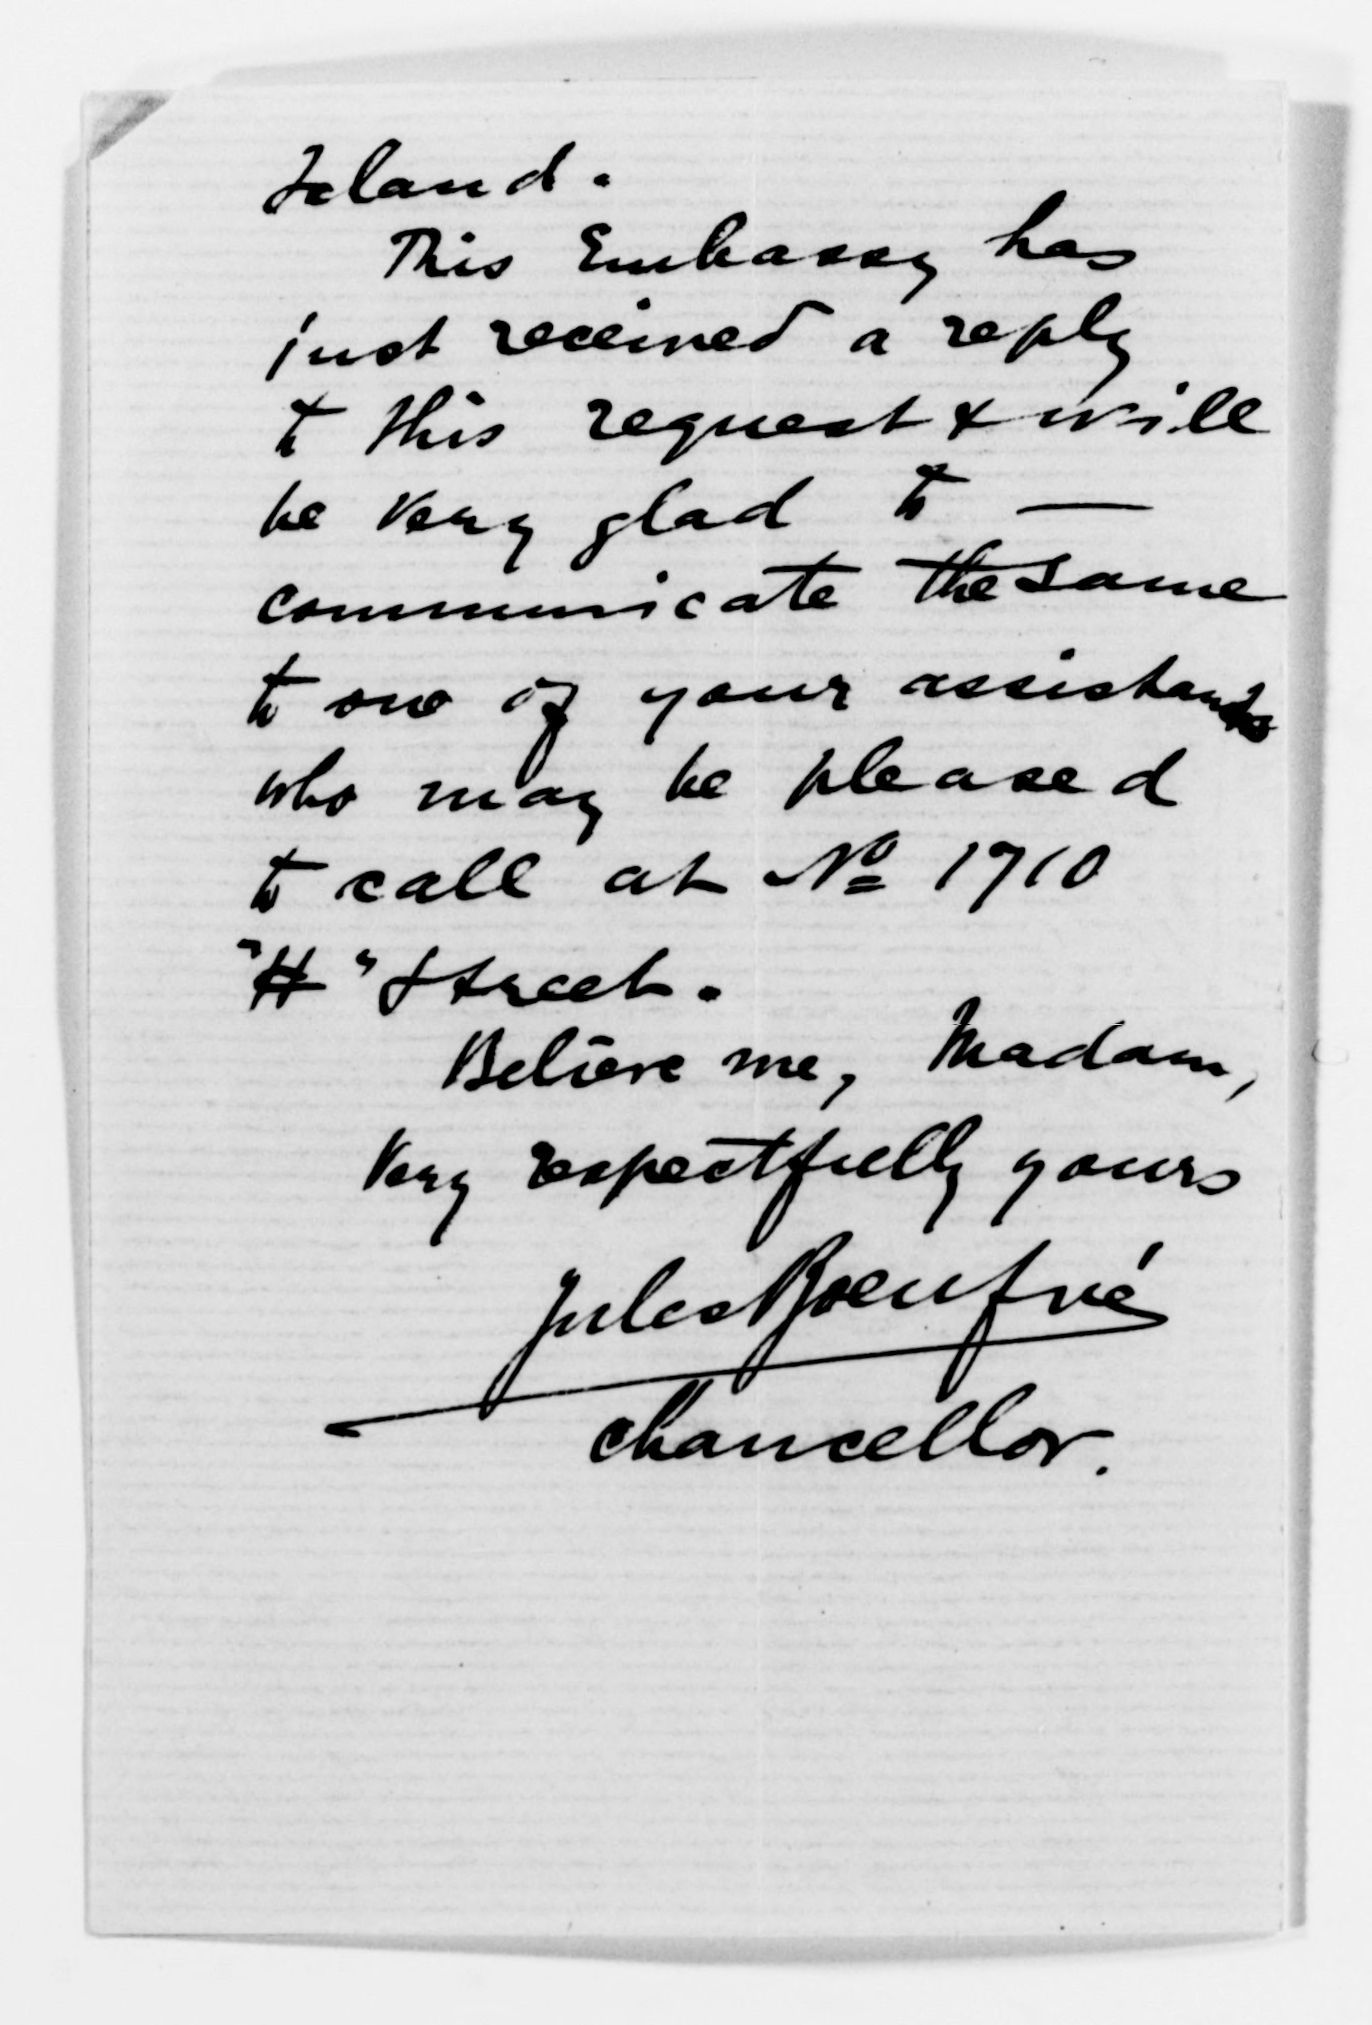 Island.
This Embassy has
just received a reply
to this request & will
be very glad to —
communicate the same
to one of your assistants
who may be pleased
to call at No 1710
"H" Street.
Believe me, Madam,
Very respectfully yours
Jules Boeufvé
Chancellor.